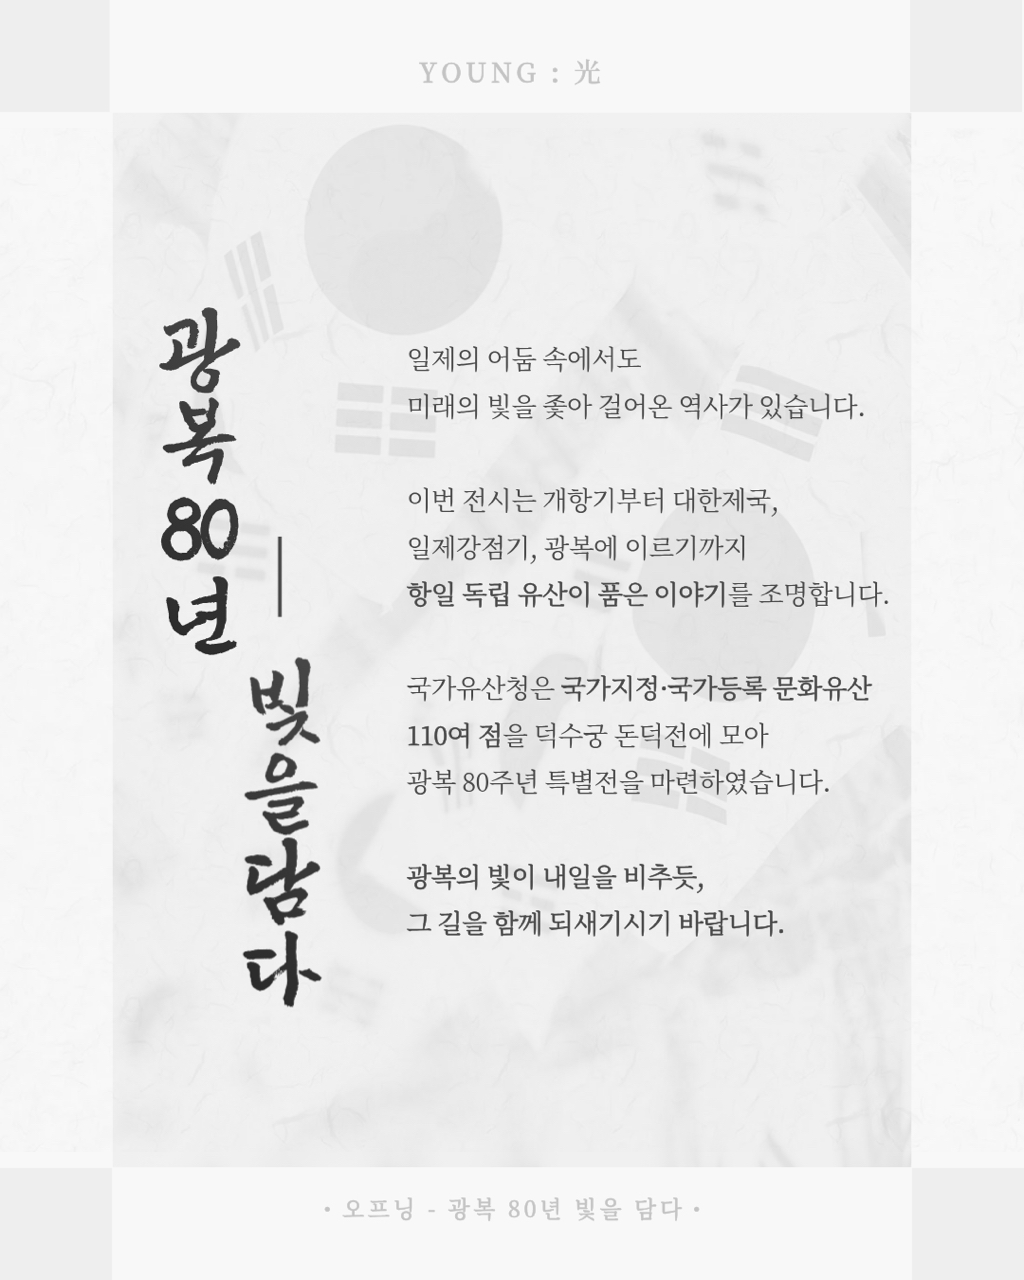 YOUNG : 光
광복
80
년
빛을담다
일제의 어둠 속에서도
미래의 빛을 좇아 걸어온 역사가 있습니다.
이번 전시는 개항기부터 대한제국,
일제강점기, 광복에 이르기까지
항일 독립 유산이 품은 이야기를 조명합니다.
국가유산청은 국가지정·국가등록 문화유산
110여 점을 덕수궁 돈덕전에 모아
광복 80주년 특별전을 마련하였습니다.
광복의 빛이 내일을 비추듯,
그 길을 함께 되새기시기 바랍니다.
• 오프닝 - 광복 80년 빛을 담다 •